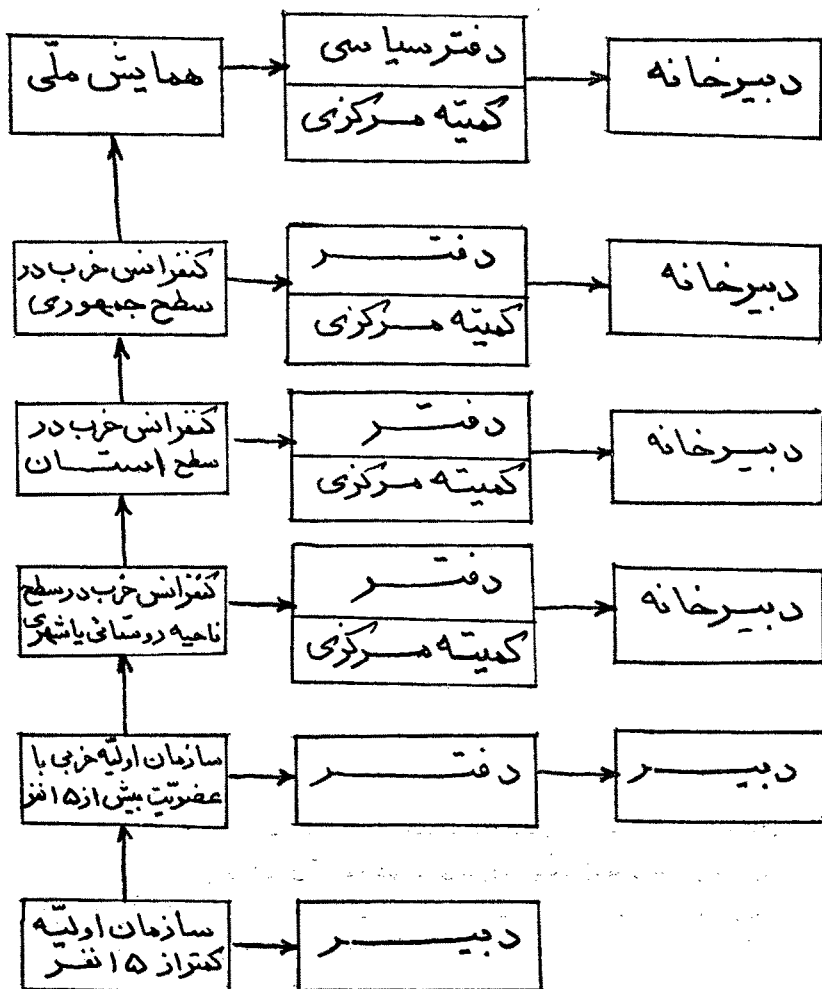 همایش ملّی
دفتر سیاسی
کمیته مرکزی
دبیرخانه
کنفرانس حزب در
سطح جمهوری
دفتر
کمیته مرکزی
دبیرخانه
کنفرانس حزب در
سطح استان
دفتر
کمیته مرکزی
دبیرخانه
کنفرانس حزب در سطح
ناحیه روستائی یا شهری
دفتر
کمیته مرکزی
دبیرخانه
سازمان اولیّه حزبی با
عضویّت بیش از ۱۵ نفر
دفتر
دبیر
سازمان اولیّه
کمتر از ۱۵ نفر
دبیر